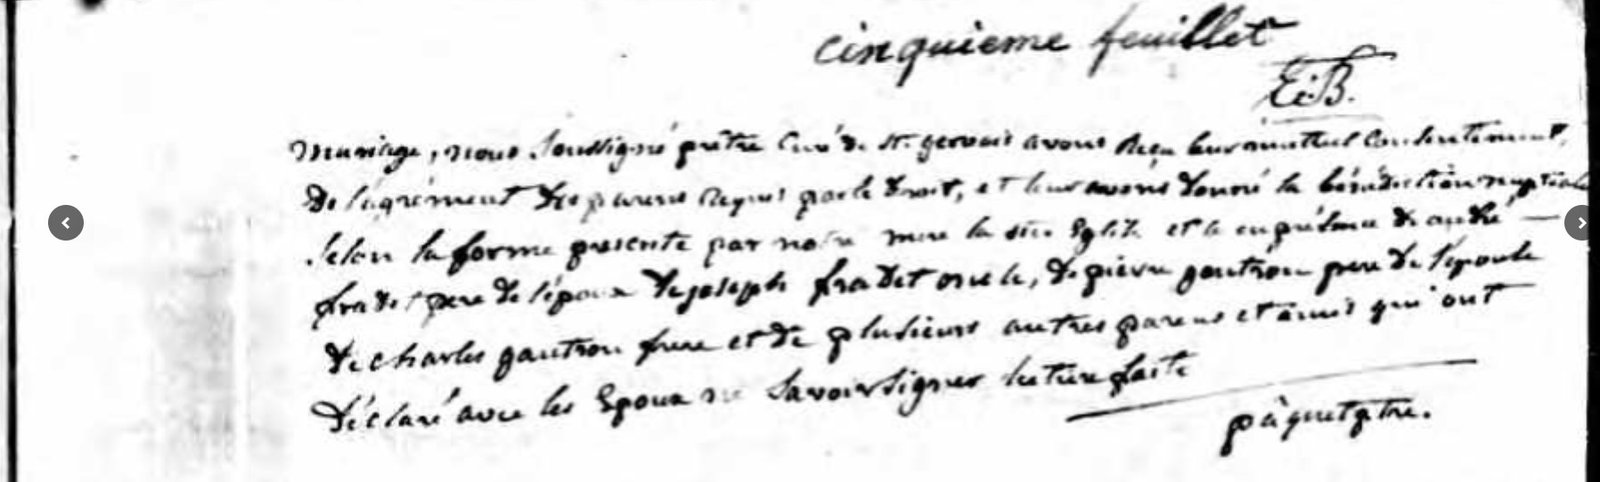 cinquieme feuillet
E:B.
mariage, nous soussigné prêtre Curé de st. gervais avons Reçu leur mutuel Consentement,
De l'agrément des parens Requis par le Droit, et leur avons donné la bénédiction nuptiale
selon la forme prescrite par notre mere la ste. Eglise et ce en présence de andré —
fradet pere de l'époux de joseph fradet oncle, de pierre gautron pere de l'épouse
de charles gautron frere et de plusieurs autres parens et amis qui ont
déclaré avec les Epoux ne savoir signer lecture faite
pâquet ptre.